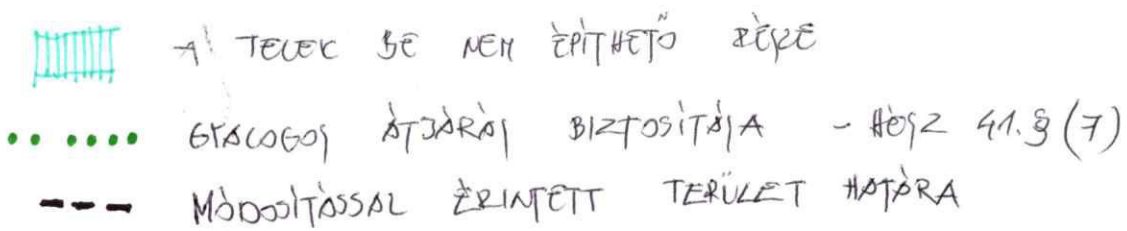 A TELEK BE NEM ÉPÍTHETŐ RÉSZE
GYALOGOS ÁTJÁRÁS BIZTOSÍTÁSA - HÉSZ 41. § (7)
MÓDOSÍTÁSSAL ÉRINTETT TERÜLET HATÁRA